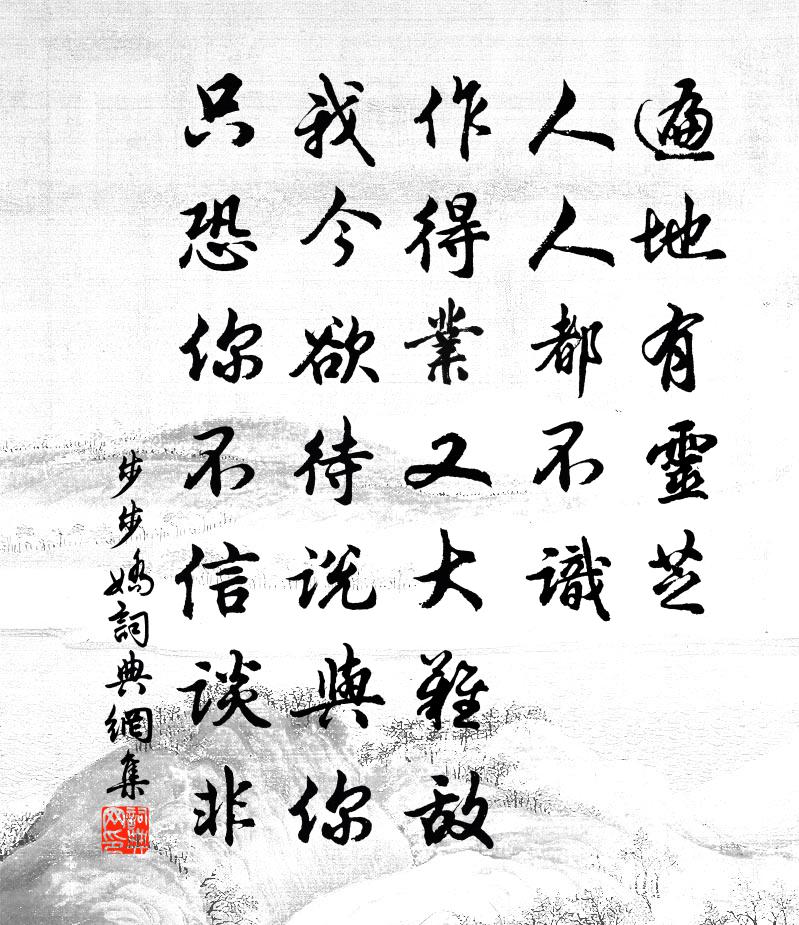 遍地有靈芝
人人都不識
作得業又大難敵
我今欲待说與你
只恐你不信談非
步步嬌詞典網集
詞典网印